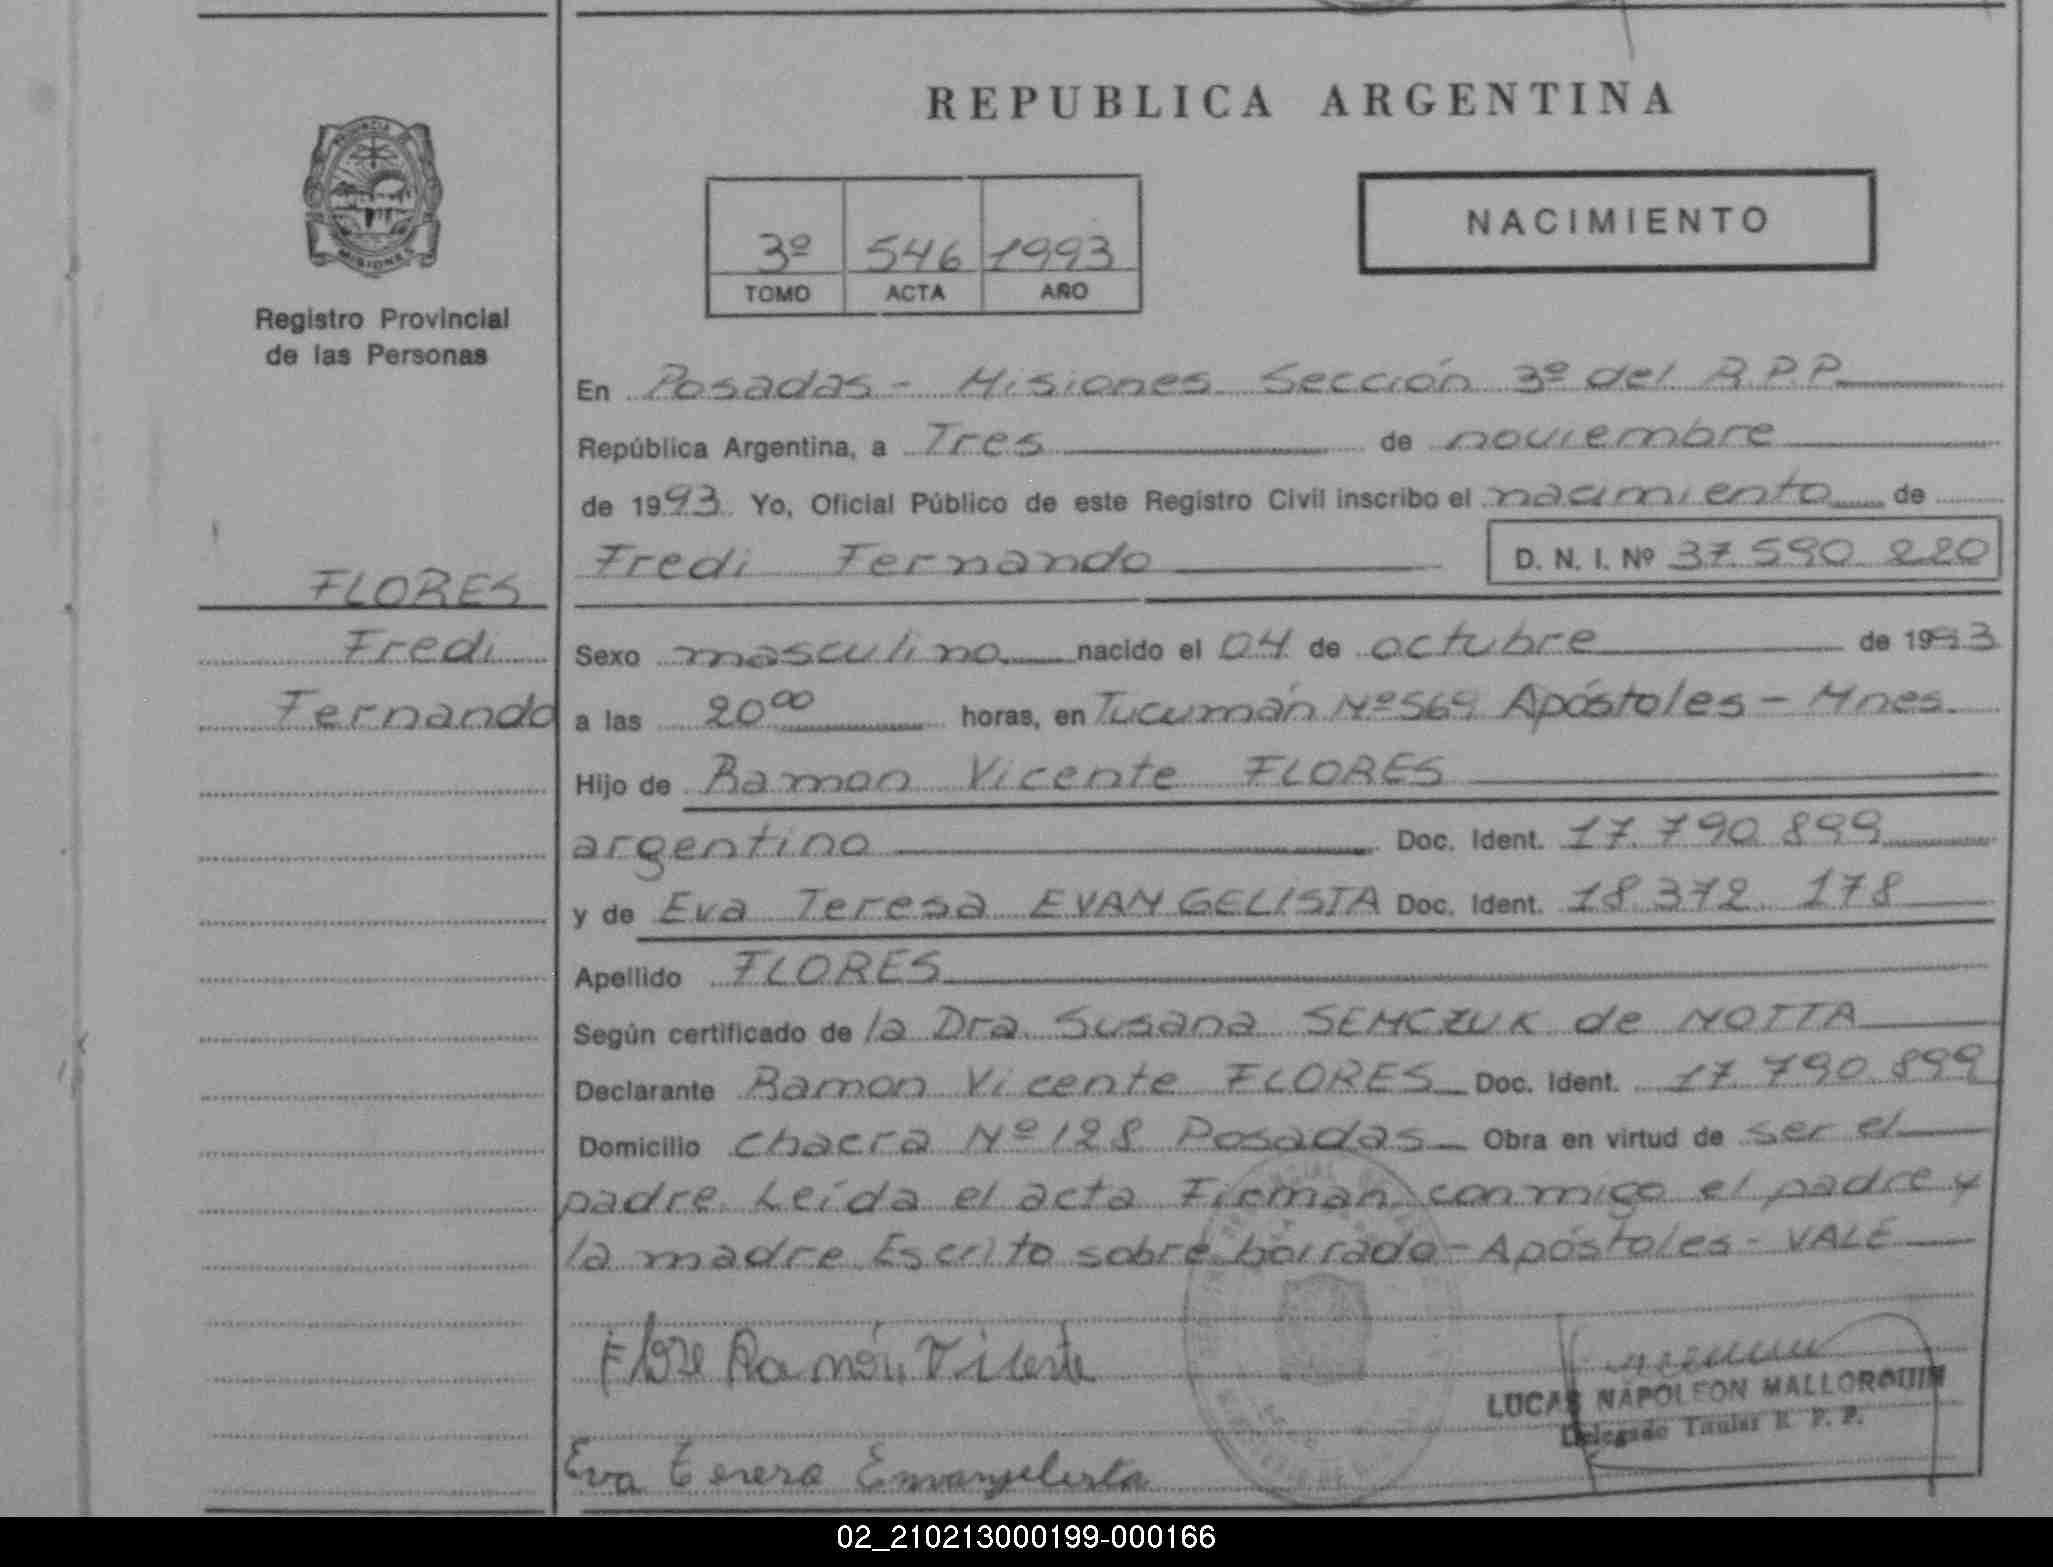 REPUBLICA ARGENTINA
PROVINCIA
MISIONES
Registro Provincial
de las Personas
NACIMIENTO
3º 546 1993
TOMO ACTA AÑO
En Posadas - Misiones Sección 3º del R.P.P.
República Argentina, a Tres de noviembre
de 1993 Yo, Oficial Público de este Registro Civil inscribo el nacimiento de
Fredi Fernando D. N. I. Nº 37.590.220
FLORES
Fredi
Fernando
Sexo masculino nacido el 04 de octubre de 1993
a las 20⁰⁰ horas, en Tucumán Nº 569 Apóstoles - Mnes.
Hijo de Ramon Vicente FLORES
argentino Doc. Ident. 17.790.899
y de Eva Teresa EVANGELISTA Doc. Ident. 18.372.178
Apellido FLORES
Según certificado de la Dra. Susana SEMCZUK de MOTTA
Declarante Ramon Vicente FLORES Doc. Ident. 17.790.899
Domicilio chacra Nº 128 Posadas Obra en virtud de ser el
padre. Leída el acta Firman conmigo el padre y
la madre. Escrito sobre borrado - Apóstoles - VALE
Ramón Vicente
LUCAS NAPOLEON MALLORQUIN
Delegado Titular R. P. P.
Eva Teresa Envangelista
02_210213000199-000166